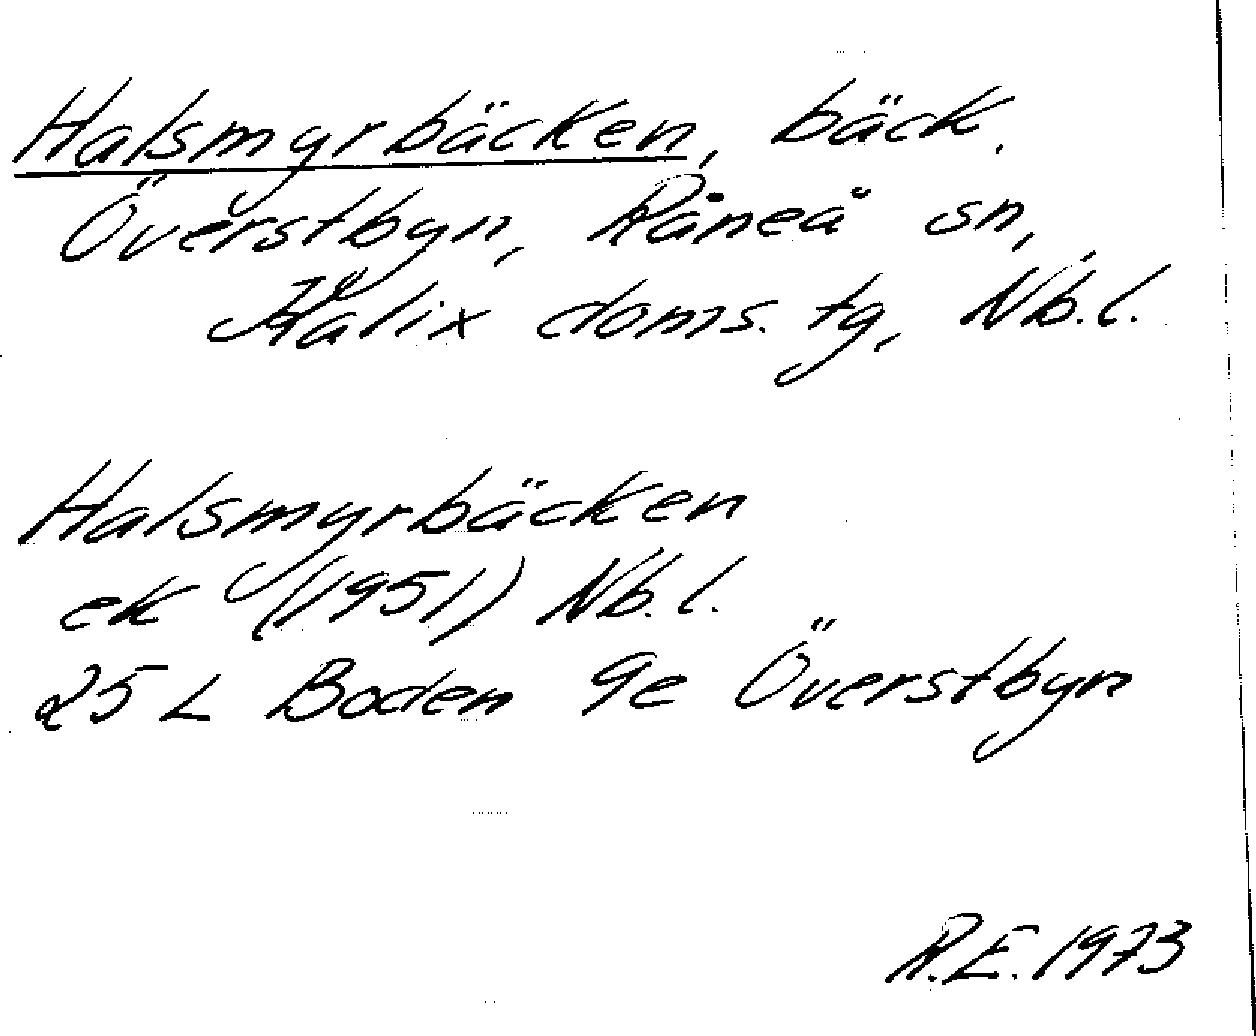 Halsmyrbäcken, bäck.
Överstbyn, Råneå sn,
Kalix doms. tg, Nb.l.
Halsmyrbäcken
ek (1951) Nb.l.
25 L Boden 9e Överstbyn
R.E. 1973